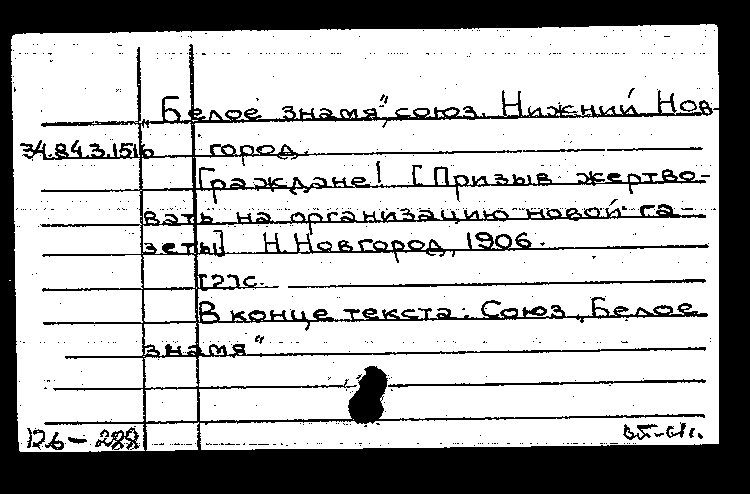 „Белое знамя“, союз. Нижний Нов-
34.84.3.151б город.
Граждане! [Призыв жертво-
вать на организацию новой га-
зеты] Н.Новгород, 1906.
[2]с.
В конце текста: Союз „Белое
знамя“.
126-288